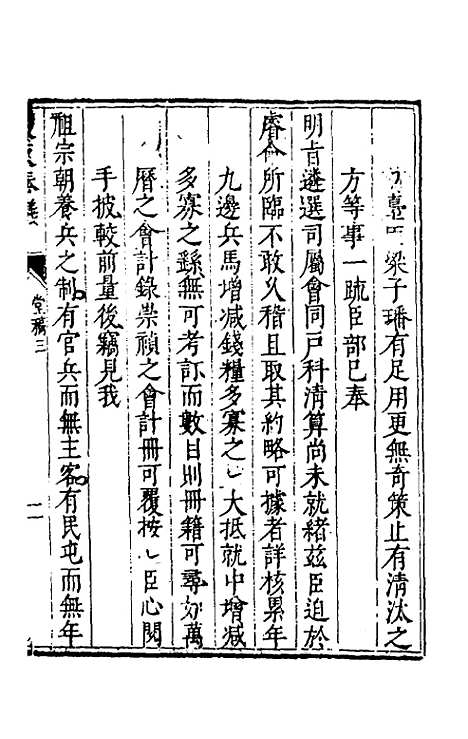 梁子璠有足用更無奇策止有清汰之
方等事一疏臣部已奉
明旨遴選司屬會同戶科清算尚未就緒兹臣迫於
睿命所臨不敢久稽且取其約略可據者詳核累年
九邊兵馬增减錢糧多寡之〻大抵就中增减
多寡之繇無可考訂而數目則冊籍可尋如萬
曆之會計錄崇禎之會計冊可覆按〻臣心閱
手披較前量後竊見我
祖宗朝養兵之制有官兵而無主客有民屯而無年
堂稿三